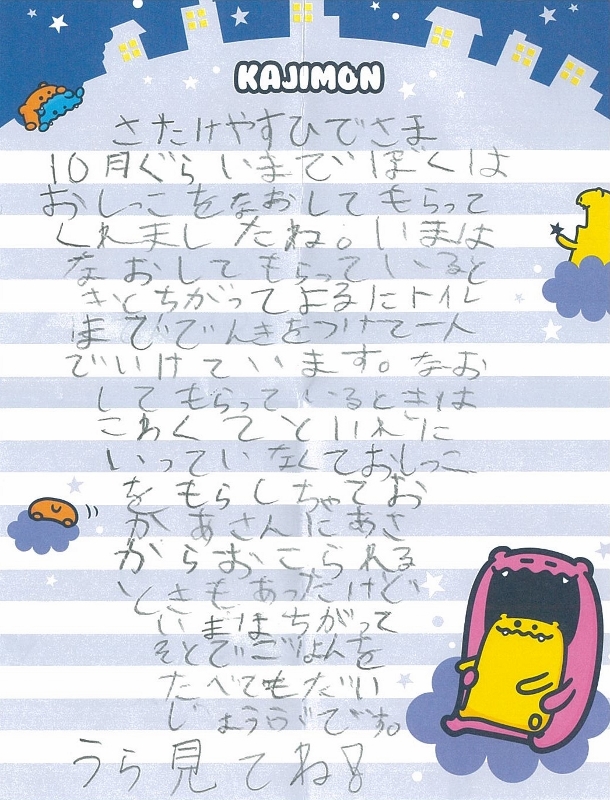 KAJIMON
さたけやすひでさま
10月ぐらいまでぼくは
おしっこをなおしてもらって
くれましたね。いまは
なおしてもらっているると
きとちがってよるにトイレ
までででんきをつけて一人
でいけています。なお
してもらっているときは
こわくてといれに
いっていなくておしっこ
をもらしちゃてお
かあさんにあさ
からおこられる
ときもあったけど
いまはちがって
そとでごはんを
たべてもだい
じょうぶです。
うら見てね!